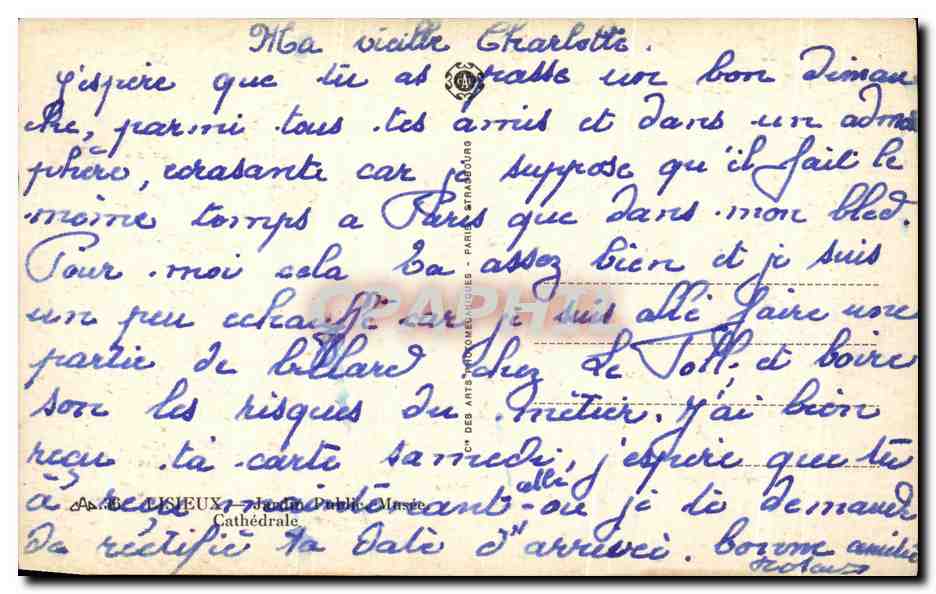 Ma vieille Charlotte.
j'espère que tu as passe un bon diman
che, parmi tous tes amis et dans un admos
phère, ecrasante car je suppose qu'il fait le
même temps a Paris que dans mon bled.
Pour moi cela va assez bien et je suis
un peu echauffé car je suis allé faire une
partie de billard chez Le Toll, et boire
son les risques du métier. J'ai bien
reçu ta carte samedi, j'espère que tu
à reçu
celle
ou je te demande
de réctifié ta date d'arrivée. bonne amitié
CAP
Cie DES ARTS PHOTOMECANIQUES - PARIS - STRASBOURG
36 LISIEUX — Jardin Public, Musée,
Cathédrale